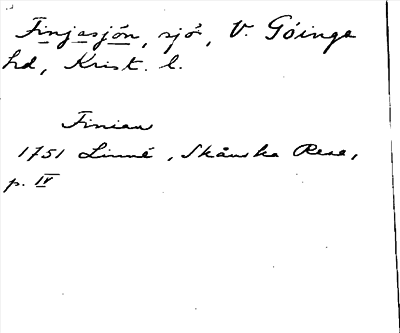 Finjasjön, sjö, V. Göinge
hd, Krist. l.
Finian
1751 Linné, Skånska Resa,
p. IV